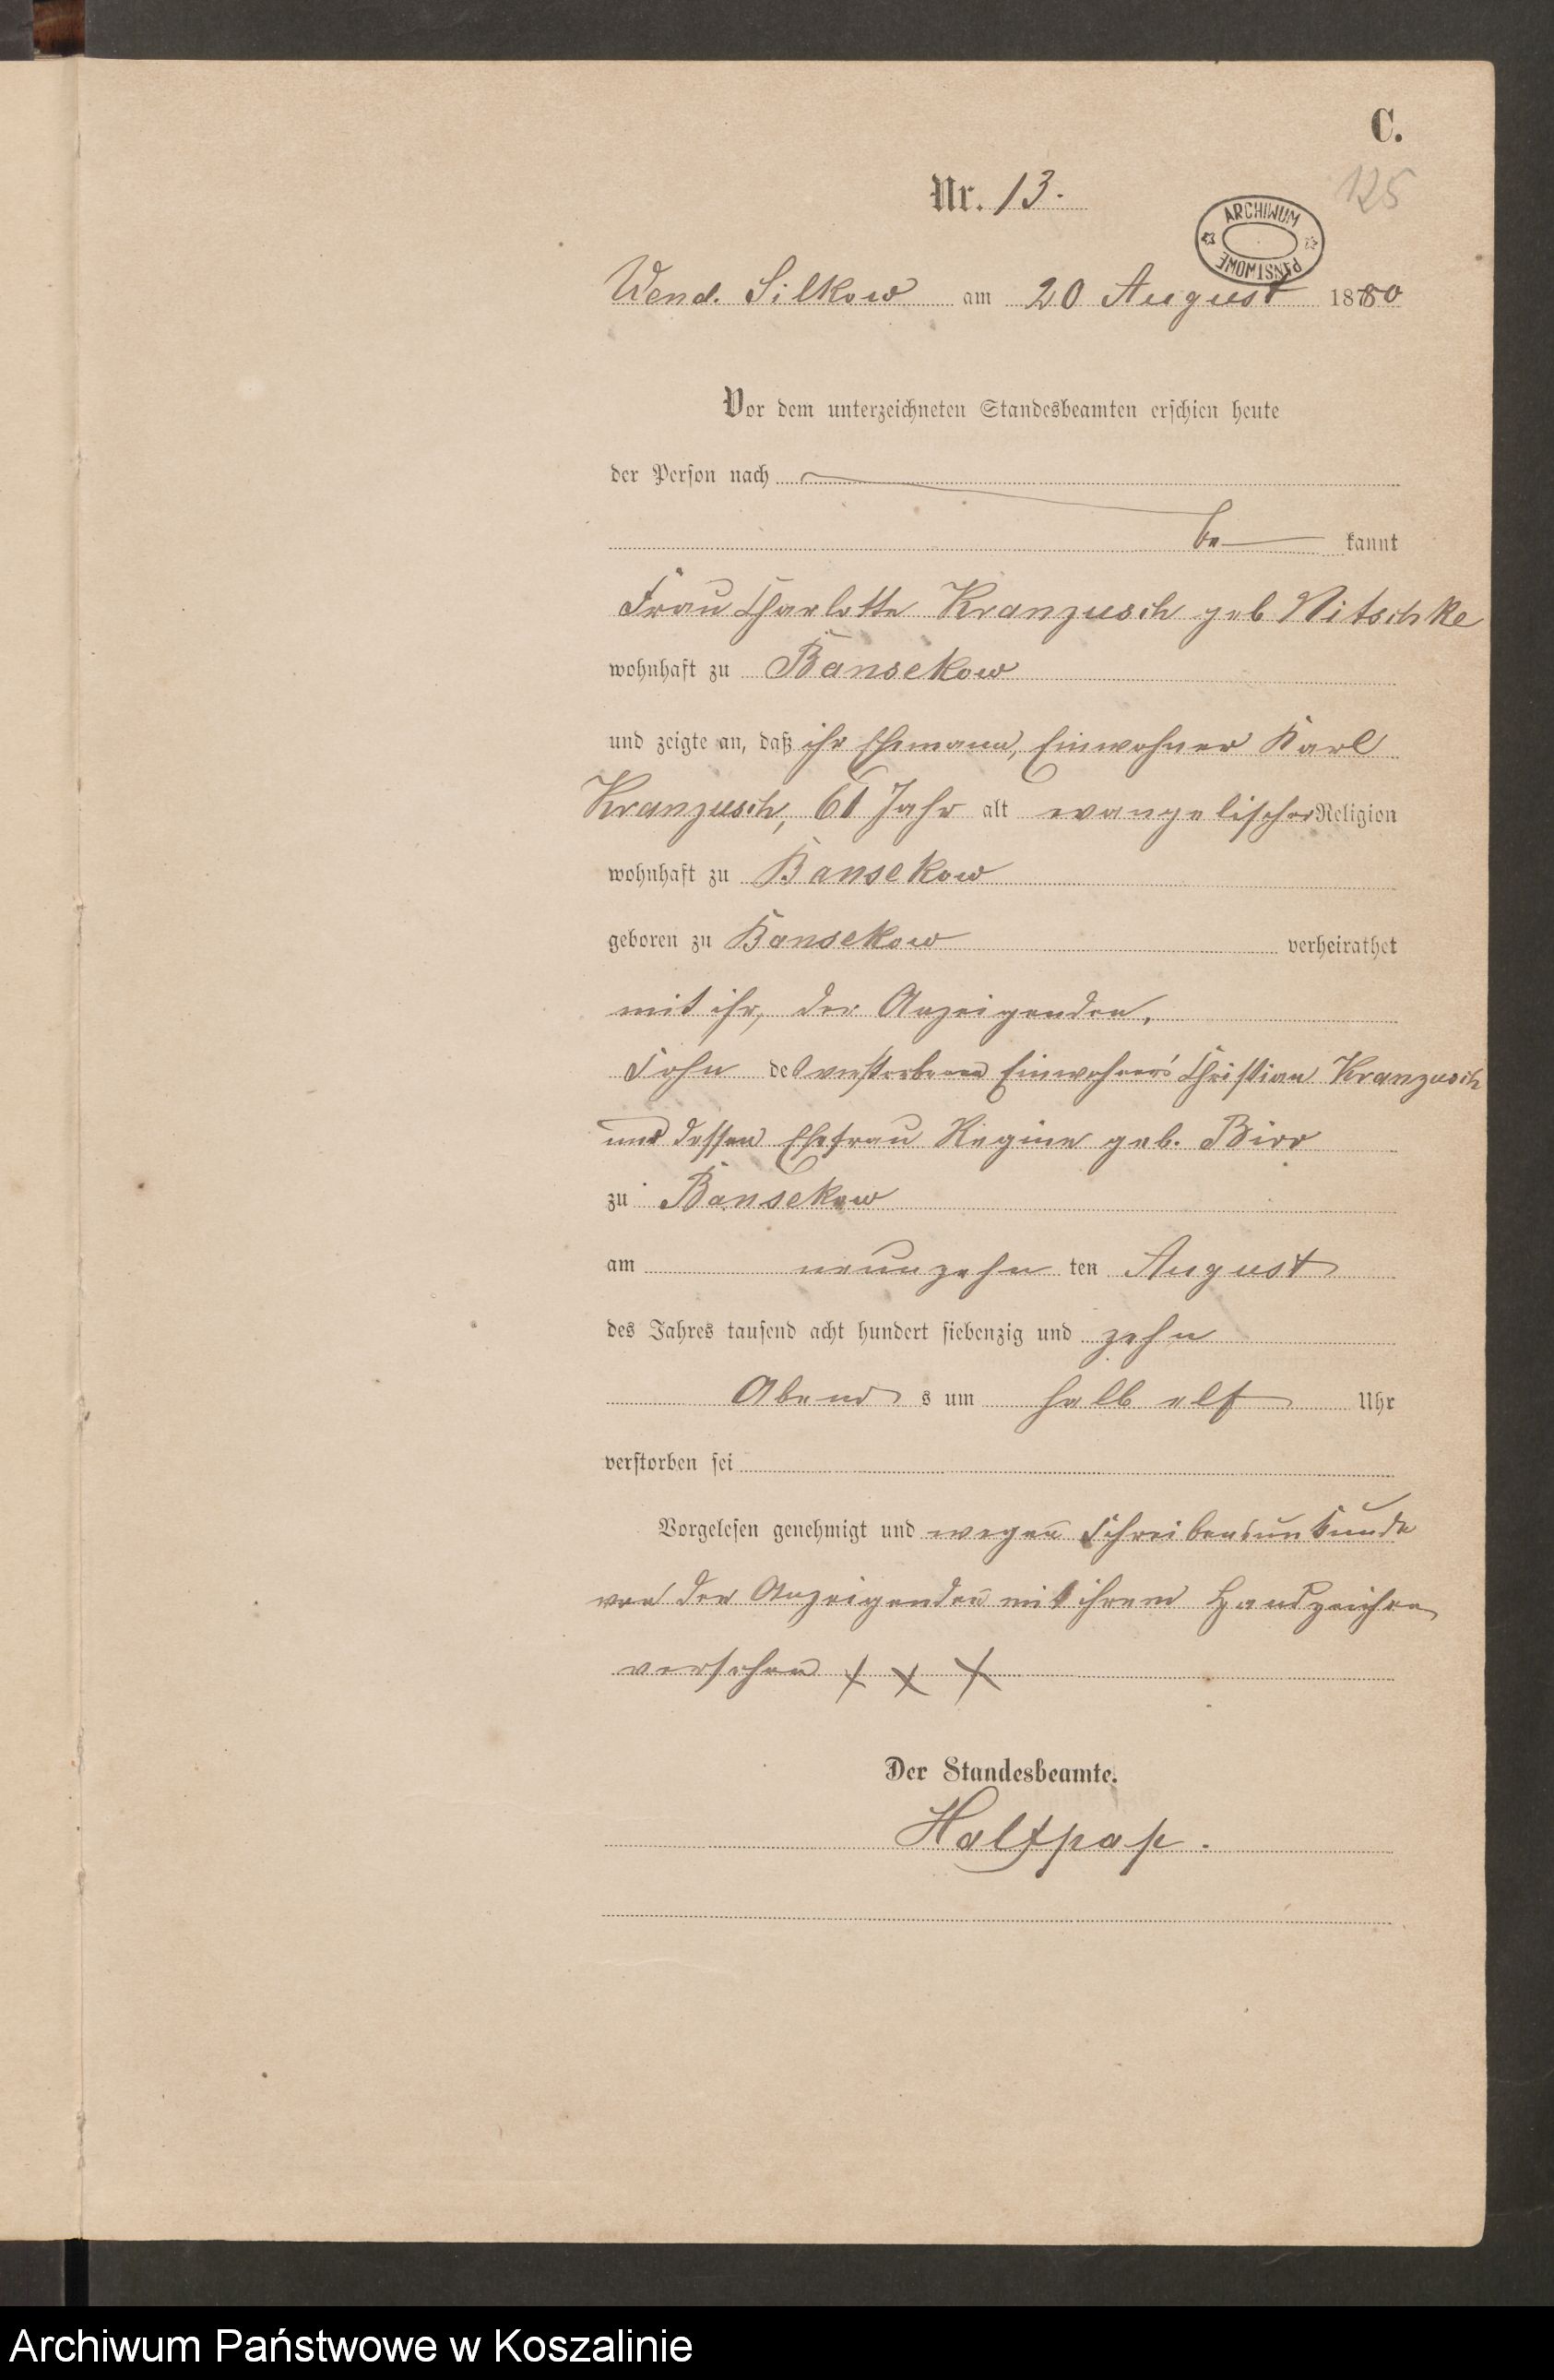 C.
125
Nr. 13.
ARCHIWUM PAŃSTWOWE
Wend. Silkow am 20 August 1880
Vor dem unterzeichneten Standesbeamten erschien heute
der Person nach
be kannt
Frau Charlotte Kranzusch geb Nitschke
wohnhaft zu Bansekow
und zeigte an, daß ihr Ehemann, Einwohner Karl
Kranzusch, 61 Jahr alt evangelischer Religion
wohnhaft zu Bansekow
geboren zu Bansekow verheirathet
mit ihr, der Anzeigenden,
Sohn des verstorbenen Einwohners Christian Kranzusch
und dessen Ehefrau Regine geb. Birr
zu Bansekow
am neunzehn ten August
des Jahres tausend acht hundert siebenzig und zehn
Abend s um halb elf Uhr
verstorben sei
Vorgelesen genehmigt und wegen Schreibensunkunde
von der Anzeigenden mit ihrem Handzeichen
versehen x x x
Der Standesbeamte.
Halfpap.
Archiwum Państwowe w Koszalinie